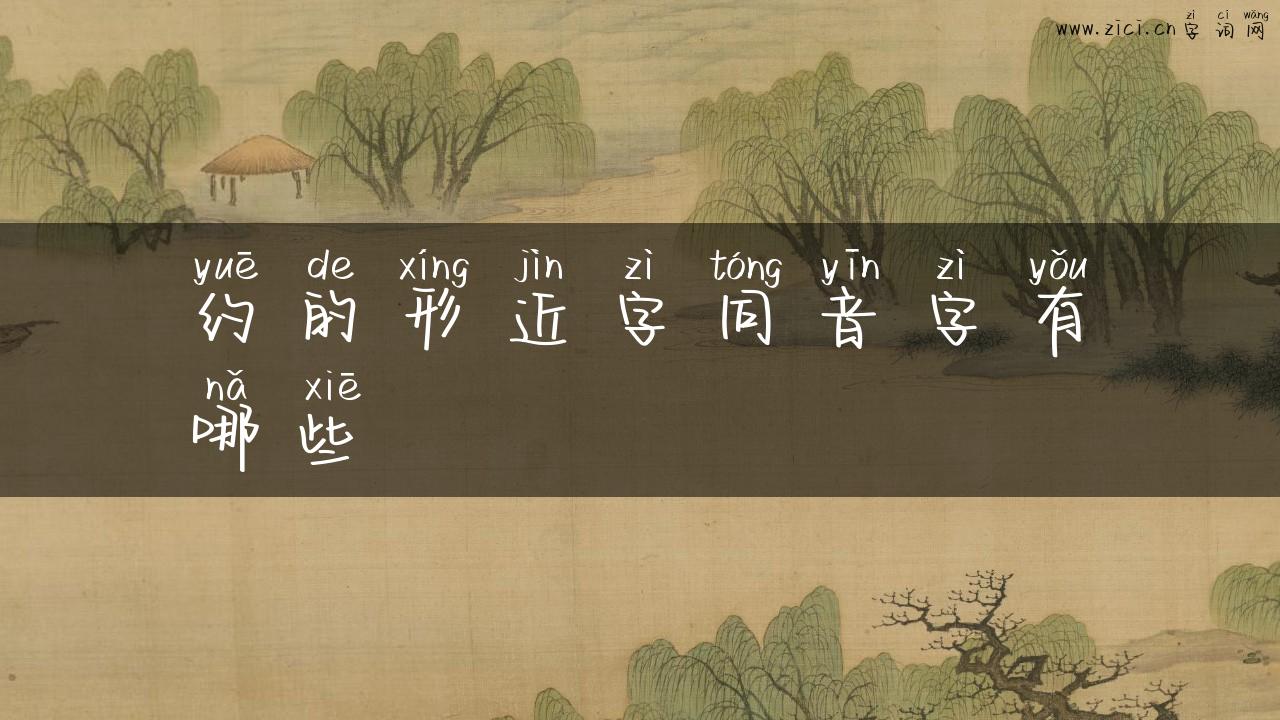 zì cí wǎng
www.zici.cn 字词网
yuē de xíng jìn zì tóng yīn zì yǒu
约的形近字同音字有
nǎ xiē
哪些